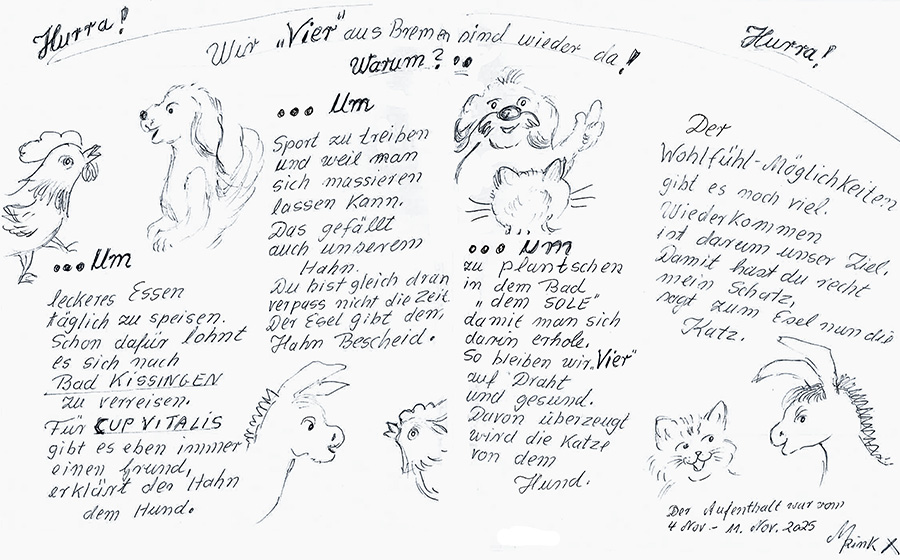 Hurra!
Wir „Vier" aus Bremen sind wieder da!
Hurra!
Warum?..
...Um
leckeres Essen
täglich zu speisen.
Schon dafür lohnt
es sich nach
Bad KISSINGEN
zu verreisen.
Für CUP VITALIS
gibt es eben immer
einen Grund,
erklärt der Hahn
dem Hund.
...Um
Sport zu treiben
und weil man
sich massieren
lassen kann.
Das gefällt
auch unserem
Hahn.
Du bist gleich dran
verpass nicht die Zeit
Der Esel gibt dem,
Hahn Bescheid.
...Um
zu plantschen
in dem Bad
„dem SOLE"
damit man sich
darin erhole.
So bleiben wir „Vier"
auf Draht
und gesund.
Davon überzeugt
wird die Katze
von dem
Hund.
Der
Wohlfühl-Möglichkeiten
gibt es noch viel.
Wiederkommen
ist darum unser Ziel.
Damit hast du recht
mein Schatz,
sagt zum Esel nun die
Katz.
Der Aufenthalt war vom
4 Nov. - 11. Nov. 2025